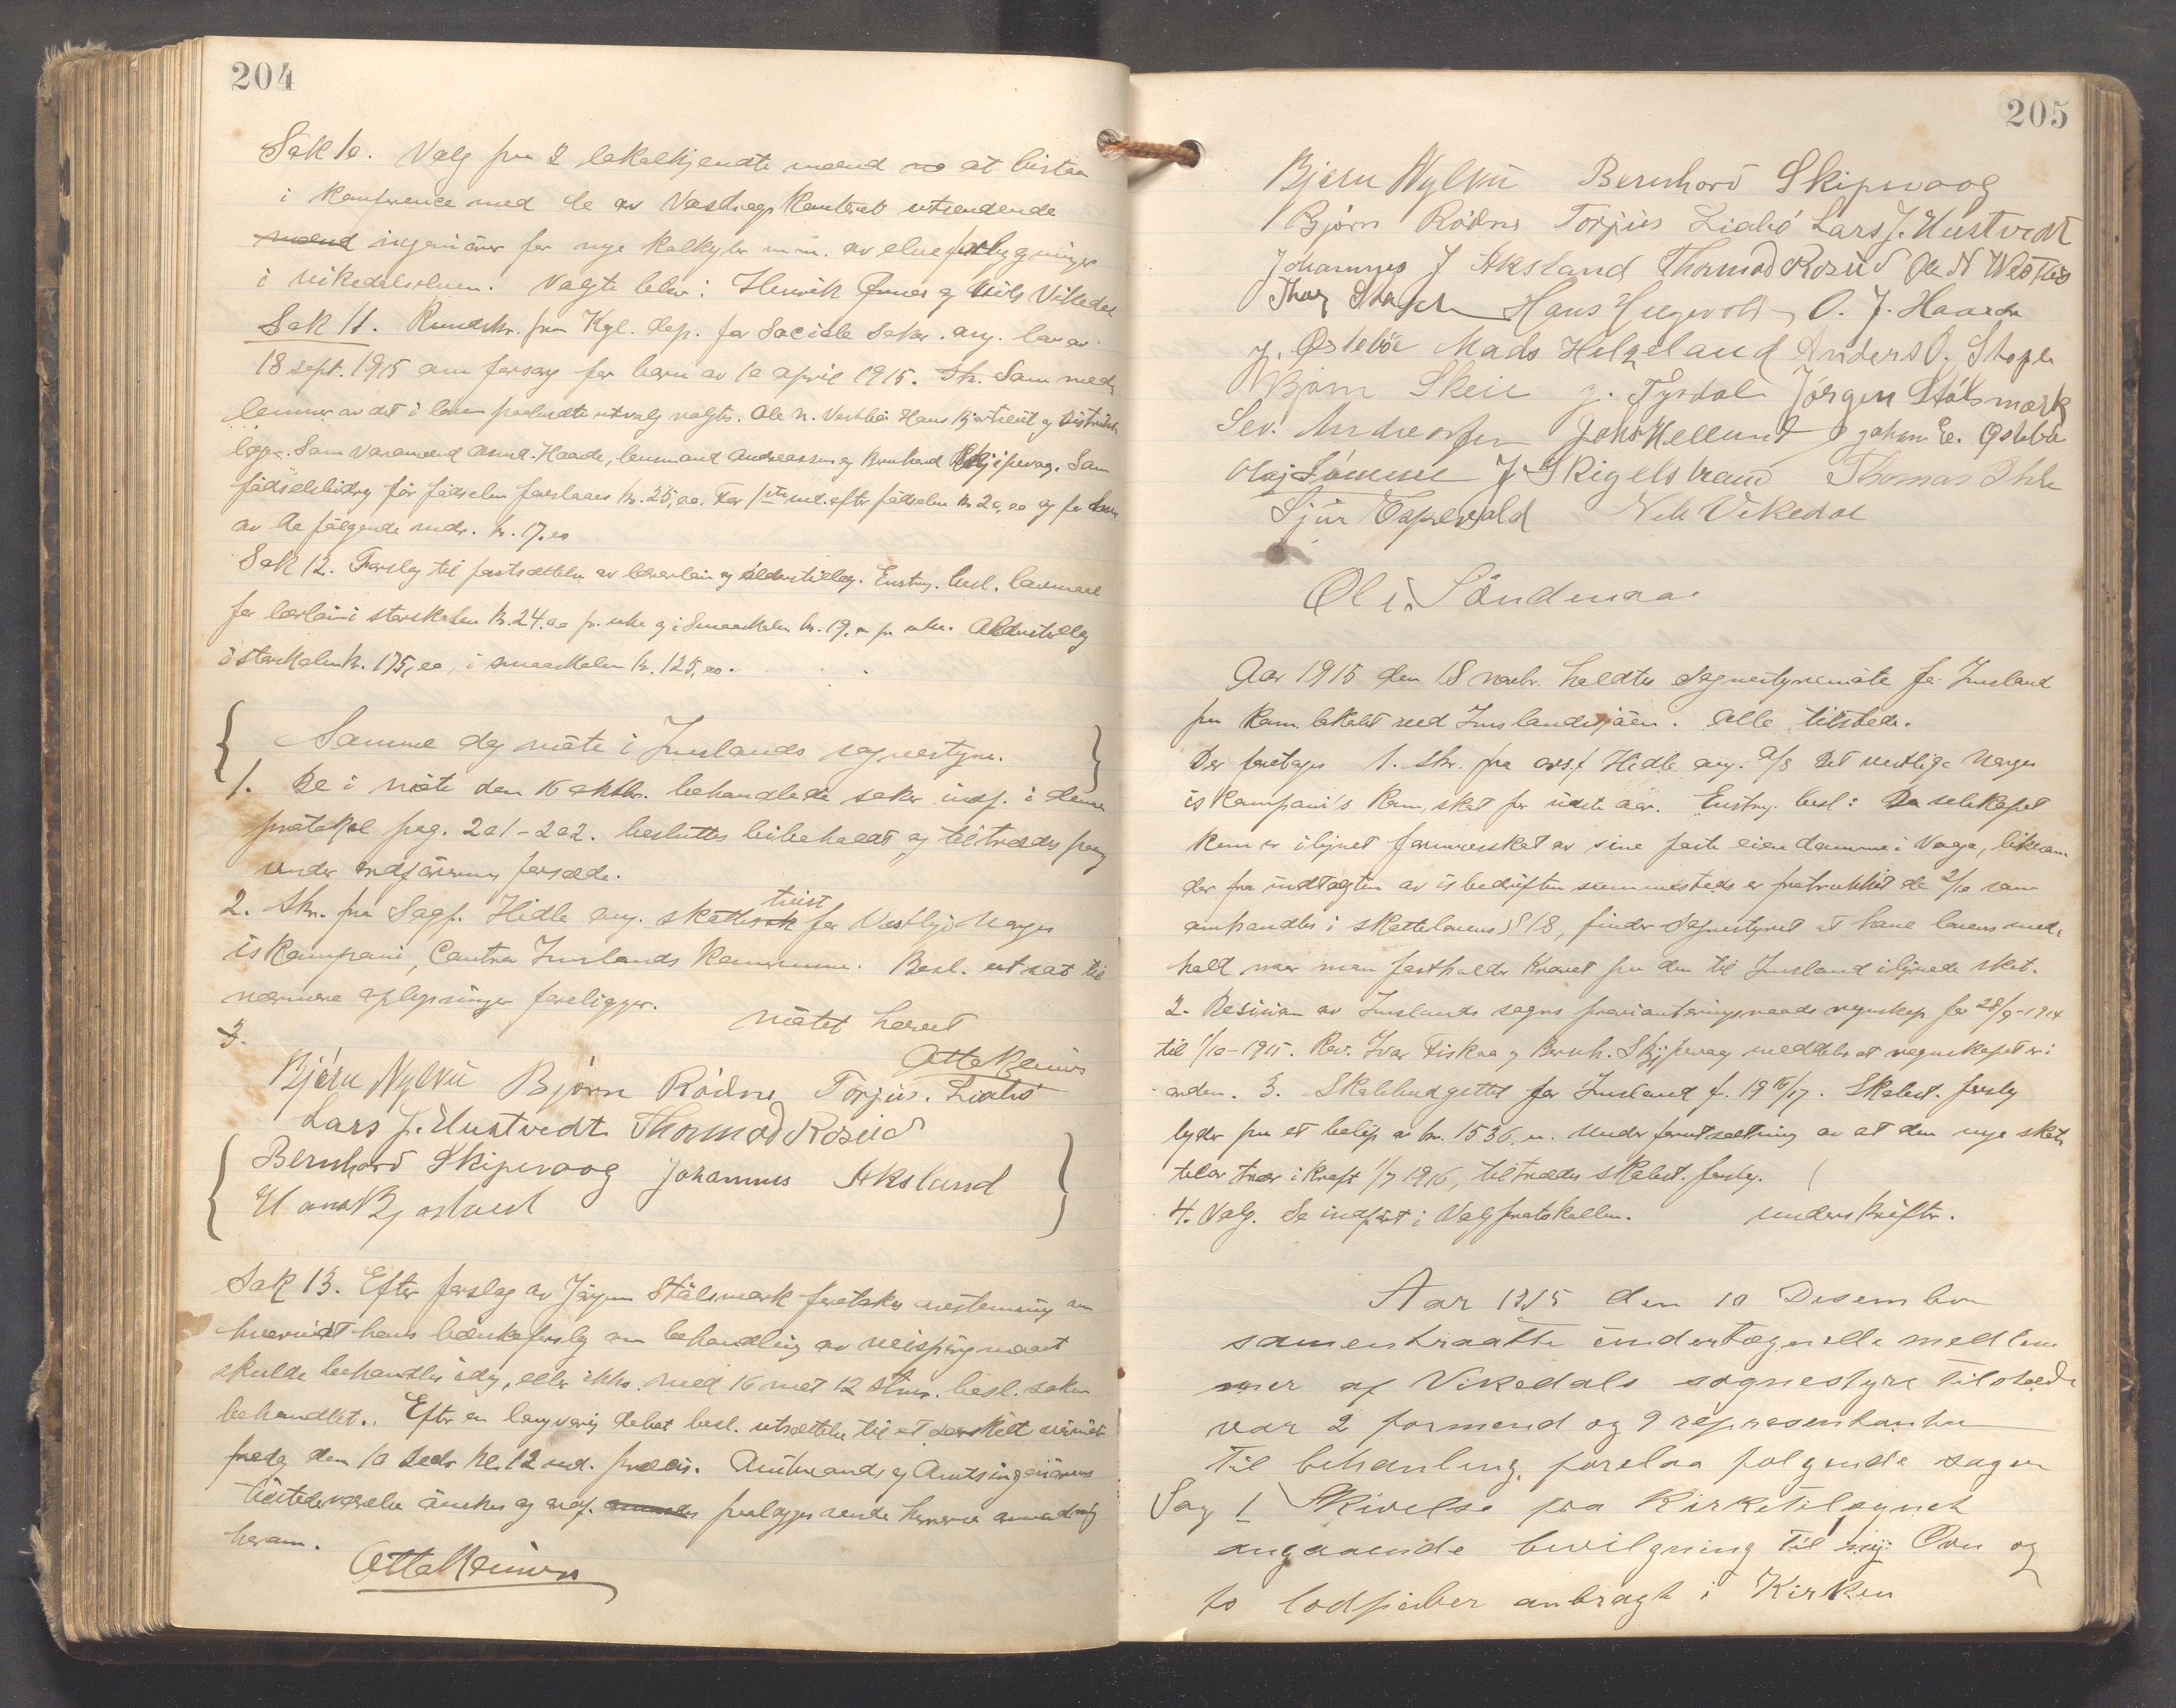 204
Sak 10. Valg paa 2 lokalkjendte mænd at bistaa
i konference med de av Vasdragskontoret utsendende
mænd ingeniörer for nye kalkyler m.m. av elveforbygninger
i Vikedalselven. Valgte blev: Henrik og Nils Vikedal
Sak 11. Rundskr. fra Kgl. dep. for Sociale Saker. ang. lov av
18 sept. 1915 om forsorg for barn av 10 april 1915. Som med-
lemmer av det i loven paabudte utvalg valgtes. Ole N. Vestbö Hans Bjøstveit og Distrikts
læge. Som varamænd Haarde, lensmand Andreassen og Bernhard Skjipevaag. Som
födselsbidrag för födselen foreslaaes kr. 25,00. For 1ste md. efter födselen kr. 20,00 og for hver
av de fölgende mdr. kr. 17,00
Sak 12. Forslag til fastsættelse av lærerlön og alderstillæg. Enstem. besl.
for lærlön i storskolen kr. 24,00 pr. uke og i Smaaskolen kr. 19,00 pr uke. Alderstillæg
i storskolen kr. 175,00, i smaaskolen kr. 125,00.
Samme dag möte i Imslands sognestyre.
1. De i möte den 16 oktbr. behandlede saker indf. i denne
protokol pag. 201-202. besluttes bibeholdt og tiltrædes paa
under indförinen forsædde.
2. Skr. fra Sagf. Hidle ang. skattetvist for Vestlige Norges
iskompani, Contra Imslands Kommune. Besl. utsat til
nærmere oplysninger foreligger.
mötet hævet
3.
Otto Reinæs
Bjørn Nylvii Bjørn Rödne Torjus. Liabö
Lars J. Hustvedt Thormod Rosiid
Bernhard Skipevaag Johannes Aksland
Hans Bjøstveit
Sak 13. Efter forslag av Jörgen Stölsmark foretokes avstemning om
hvorvidt hans bænkeforslag om behandling av veispörgsmaalet
skulde behandles idag, eller ikke. med 16 mot 12 stmr. besl. saken
behandlet. Efter en langvarig debat besl. utsættelse til et særskilt möte
fredag den 10 Decbr kl. 12 md. præcis. Amtmands og Amtsingeniörens
tilstedeværelse önskes og forelægges sende herrer anmodning
herom.
Otto Reinæs
205
Bjørn Nylvii Bernhard Skipevaag
Bjørn Rödne Torjus Liabö Lars J. Hustvedt
Johannes J Aksland Thormod Rosiid Ole N Westbø
Thor Hans Helgevold O. J. Haarde
J. Østebö Mads Helgeland Anders O. Stople
Bjørn Skeie J. Tysdal Jörgen Stölsmark
Sev. Andreassen Johs Mellund Johan E. Østebö
Olaj Sömme J Skigelstrand Thomas Ihle
Sjur Espevold Nils Vikedal
Ole Söndenaa
Aar 1915 den 18 novbr. holdtes Sognestyremöte for Imsland
paa kom. lokalet ved Imslandsjöen. Alle tilstede.
Der foretages 1. Skr. fra ovs.f. Hidle ang. A/S Det vestlige Norges
iskompani's kom. skat for siste aar. Enstem. besl: Da selskapet
kun er ilignet formuesskat av sine faste eiendomme i Vaage, likesom
der fra indtægten av isbedriften sammesteds er fratrukket de 2/10 som
omhandles i skattelovens § 18, finder Sognestyret at have lovens med-
hold naar man fastholder kravet paa den til Imsland ilignede skat.
2. Desision av Imslands sogns provianteringsraads regnskap for 28/9-1914
til 1/10-1915. Rev. Ivar Fiskaa og Bernh. Skjipevaag meddeler at regnskapet er i
orden. 3. Skolebudgettet for Imsland f. 1916/17. Skolest. forslag
lyder paa et belöp av kr. 1536,00. Under forutsætning av at den nye skatte
telov træer i kraft 1/7 1916, tiltrædes skolest. forslag.
4. Valg. Se indfört i Valgprotokollen. underskrifter.
Aar 1915 den 10 Desember
samentraatte undertegnede medlem
mer af Vikedals sognestyre tilstæde
var 2 formend og 9 representanter
til behanling, forelaa folgende sager
Sag 1 Skivelse fra Kirketilsynet
angaaende bevilgning til ny Ovn og
to lodpiber anbragt i Kirken